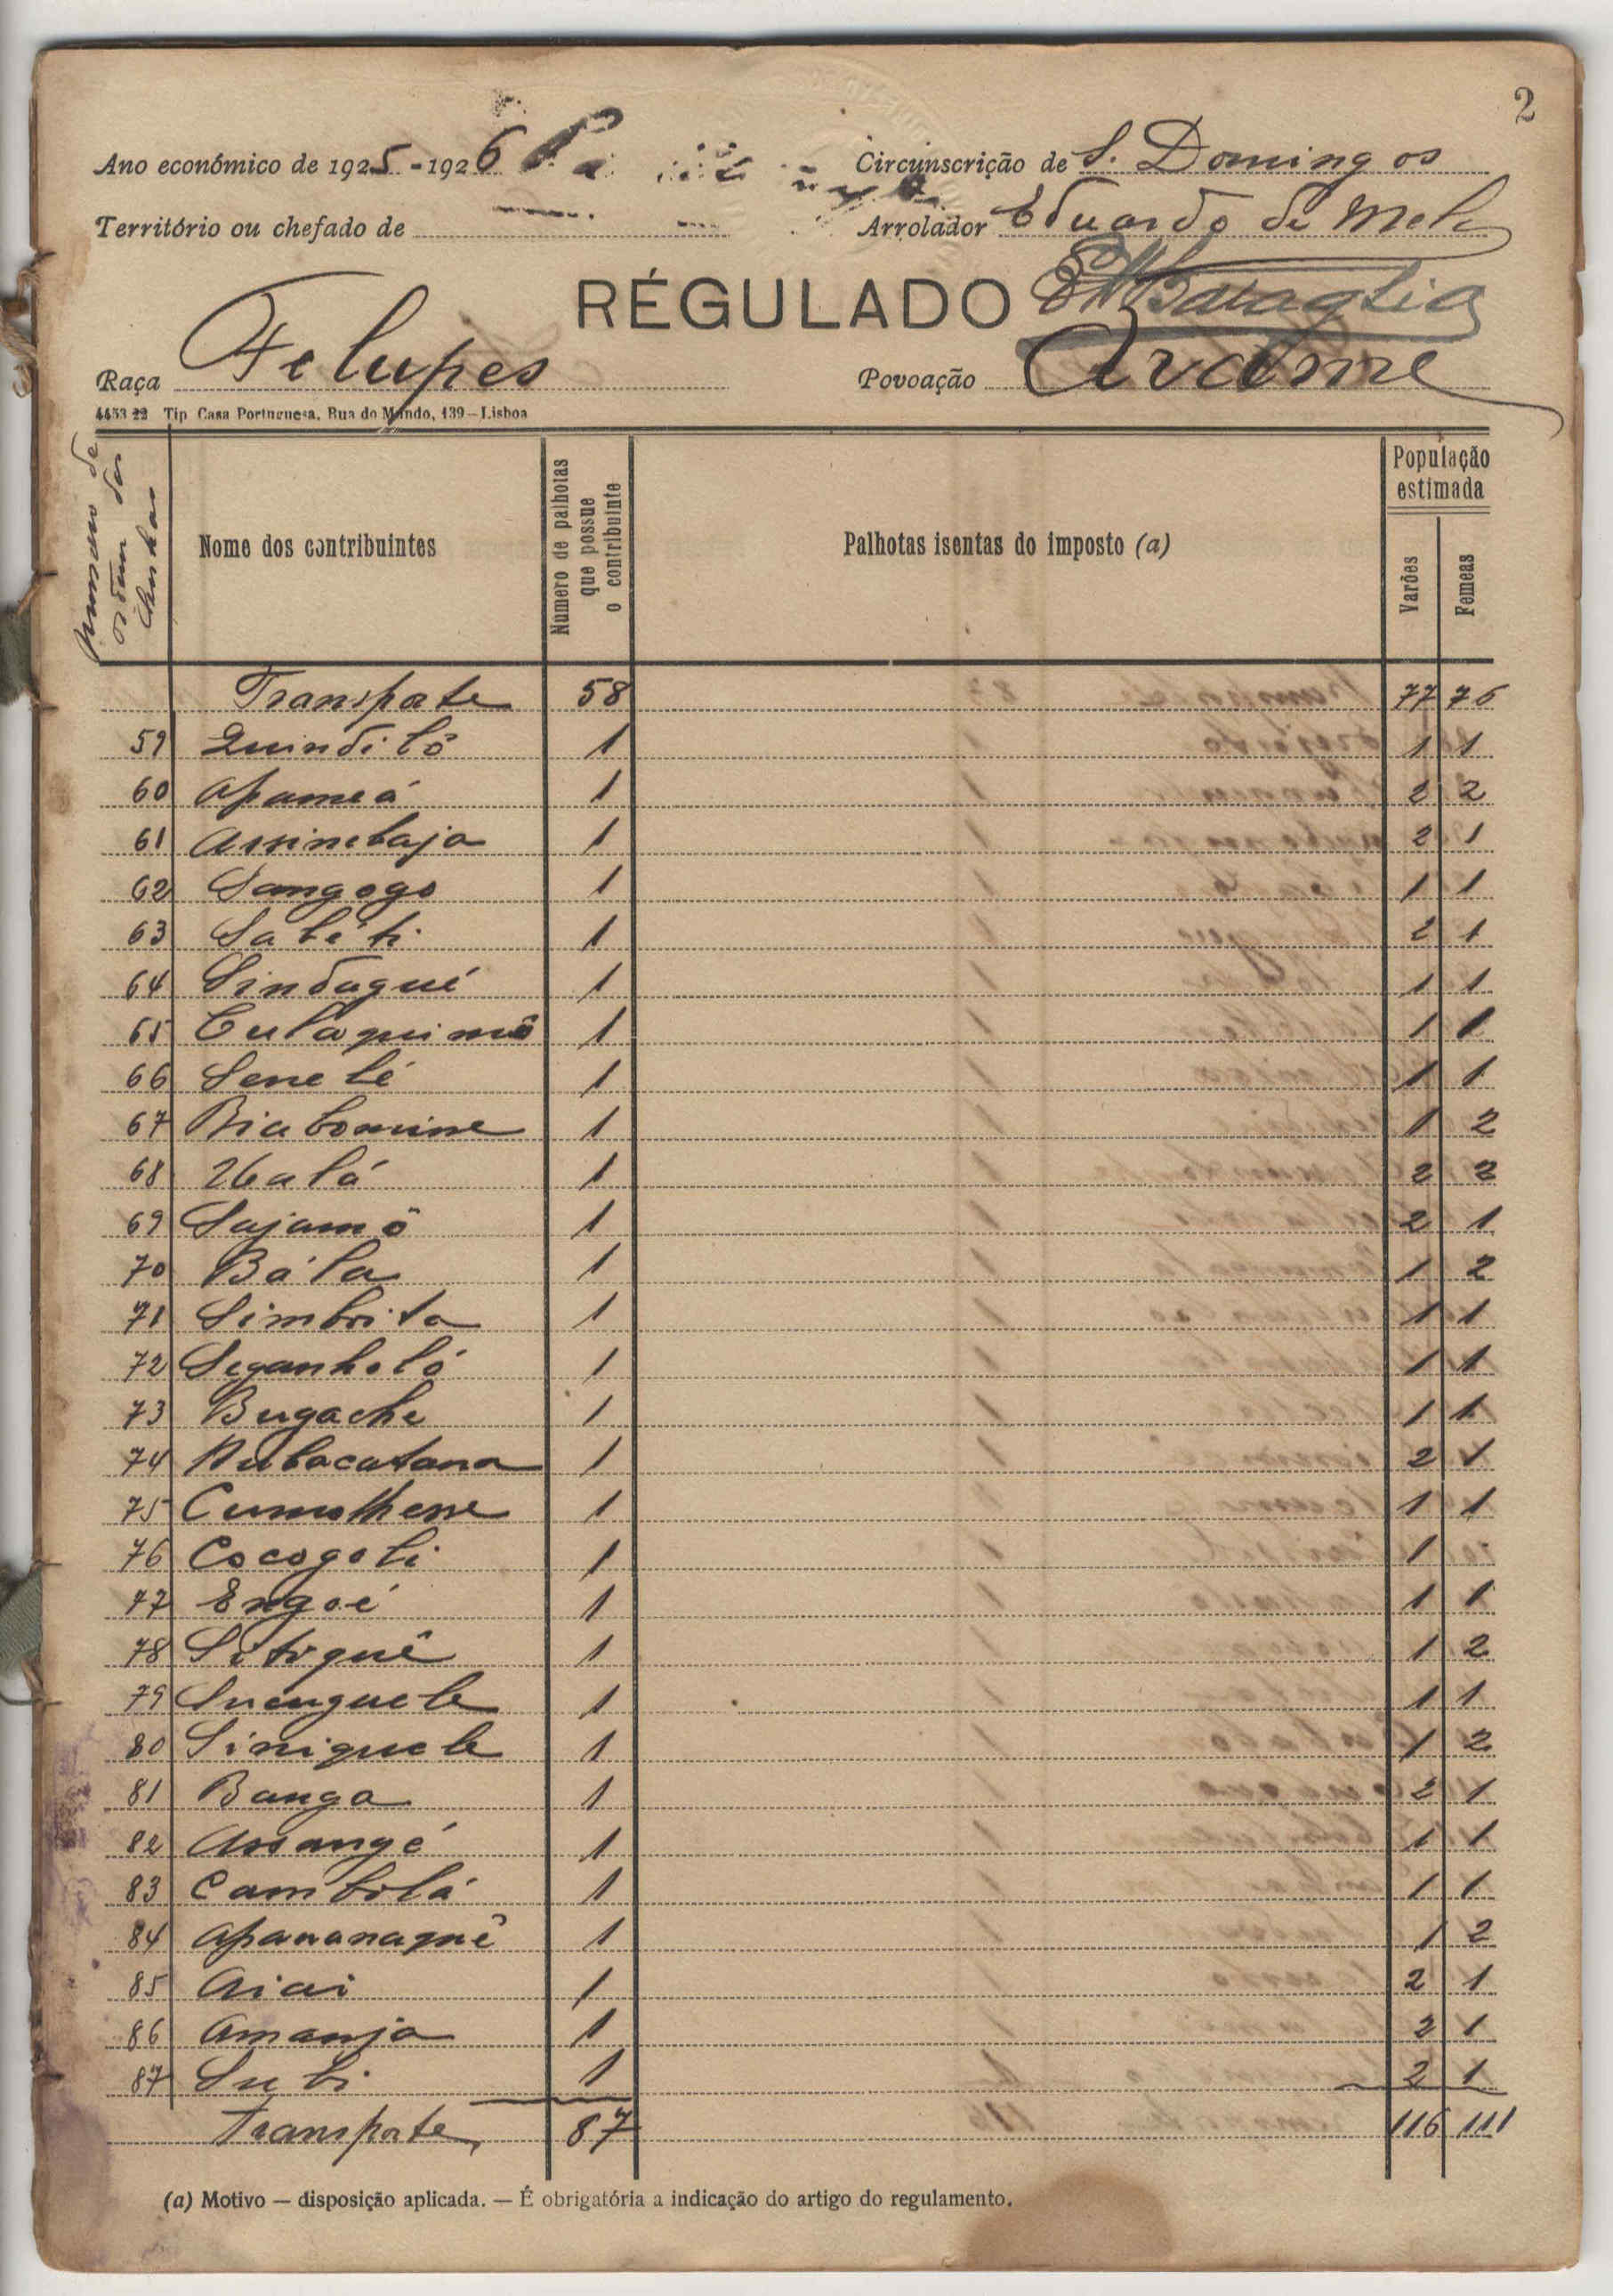 2
Ano económico de 1925-1926 Circunscrição de S. Domingos
Território ou chefado de Arrolador Eduardo de Melo
RÉGULADO
Raça Felupes Povoação Arame
4453 22 Tip. Casa Portuguesa, Rua do Mundo, 139—Lisboa
numero de ordem das chenhas
Nome dos contribuintes
Numero de palhotas que possue o contribuinte
Palhotas isentas do imposto (a)
População estimada
Varões
Femeas
Transporte 58 77 76
59 Quindiló 1 1 1
60 Apameá 1 2 2
61 Assinebaja 1 2 1
62 Sangogo 1 1 1
63 Sabéti 1 2 1
64 Sindugué 1 1 1
65 Culaquimô 1 1 1
66 Senelé 1 1 1
67 Biabomine 1 1 2
68 Ualá 1 2 2
69 Sajamô 1 2 1
70 Bála 1 1 2
71 Simbrita 1 1 1
72 Seganholó 1 1 1
73 Bugache 1 1 1
74 Nubacatana 1 2 1
75 1 1 1
76 Cocogoli 1 1 -
77 Engoé 1 1 1
78 Sitiguê 1 1 2
79 1 1 1
80 Siniguele 1 1 2
81 Banga 1 2 1
82 Assangé 1 1 1
83 Cambolá 1 1 1
84 Apananaguê 1 1 2
85 Aiai 1 2 1
86 Amanja 1 2 1
87 Subi 1 2 1
Transporte 87 116 111
(a) Motivo — disposição aplicada. — É obrigatória a indicação do artigo do regulamento.